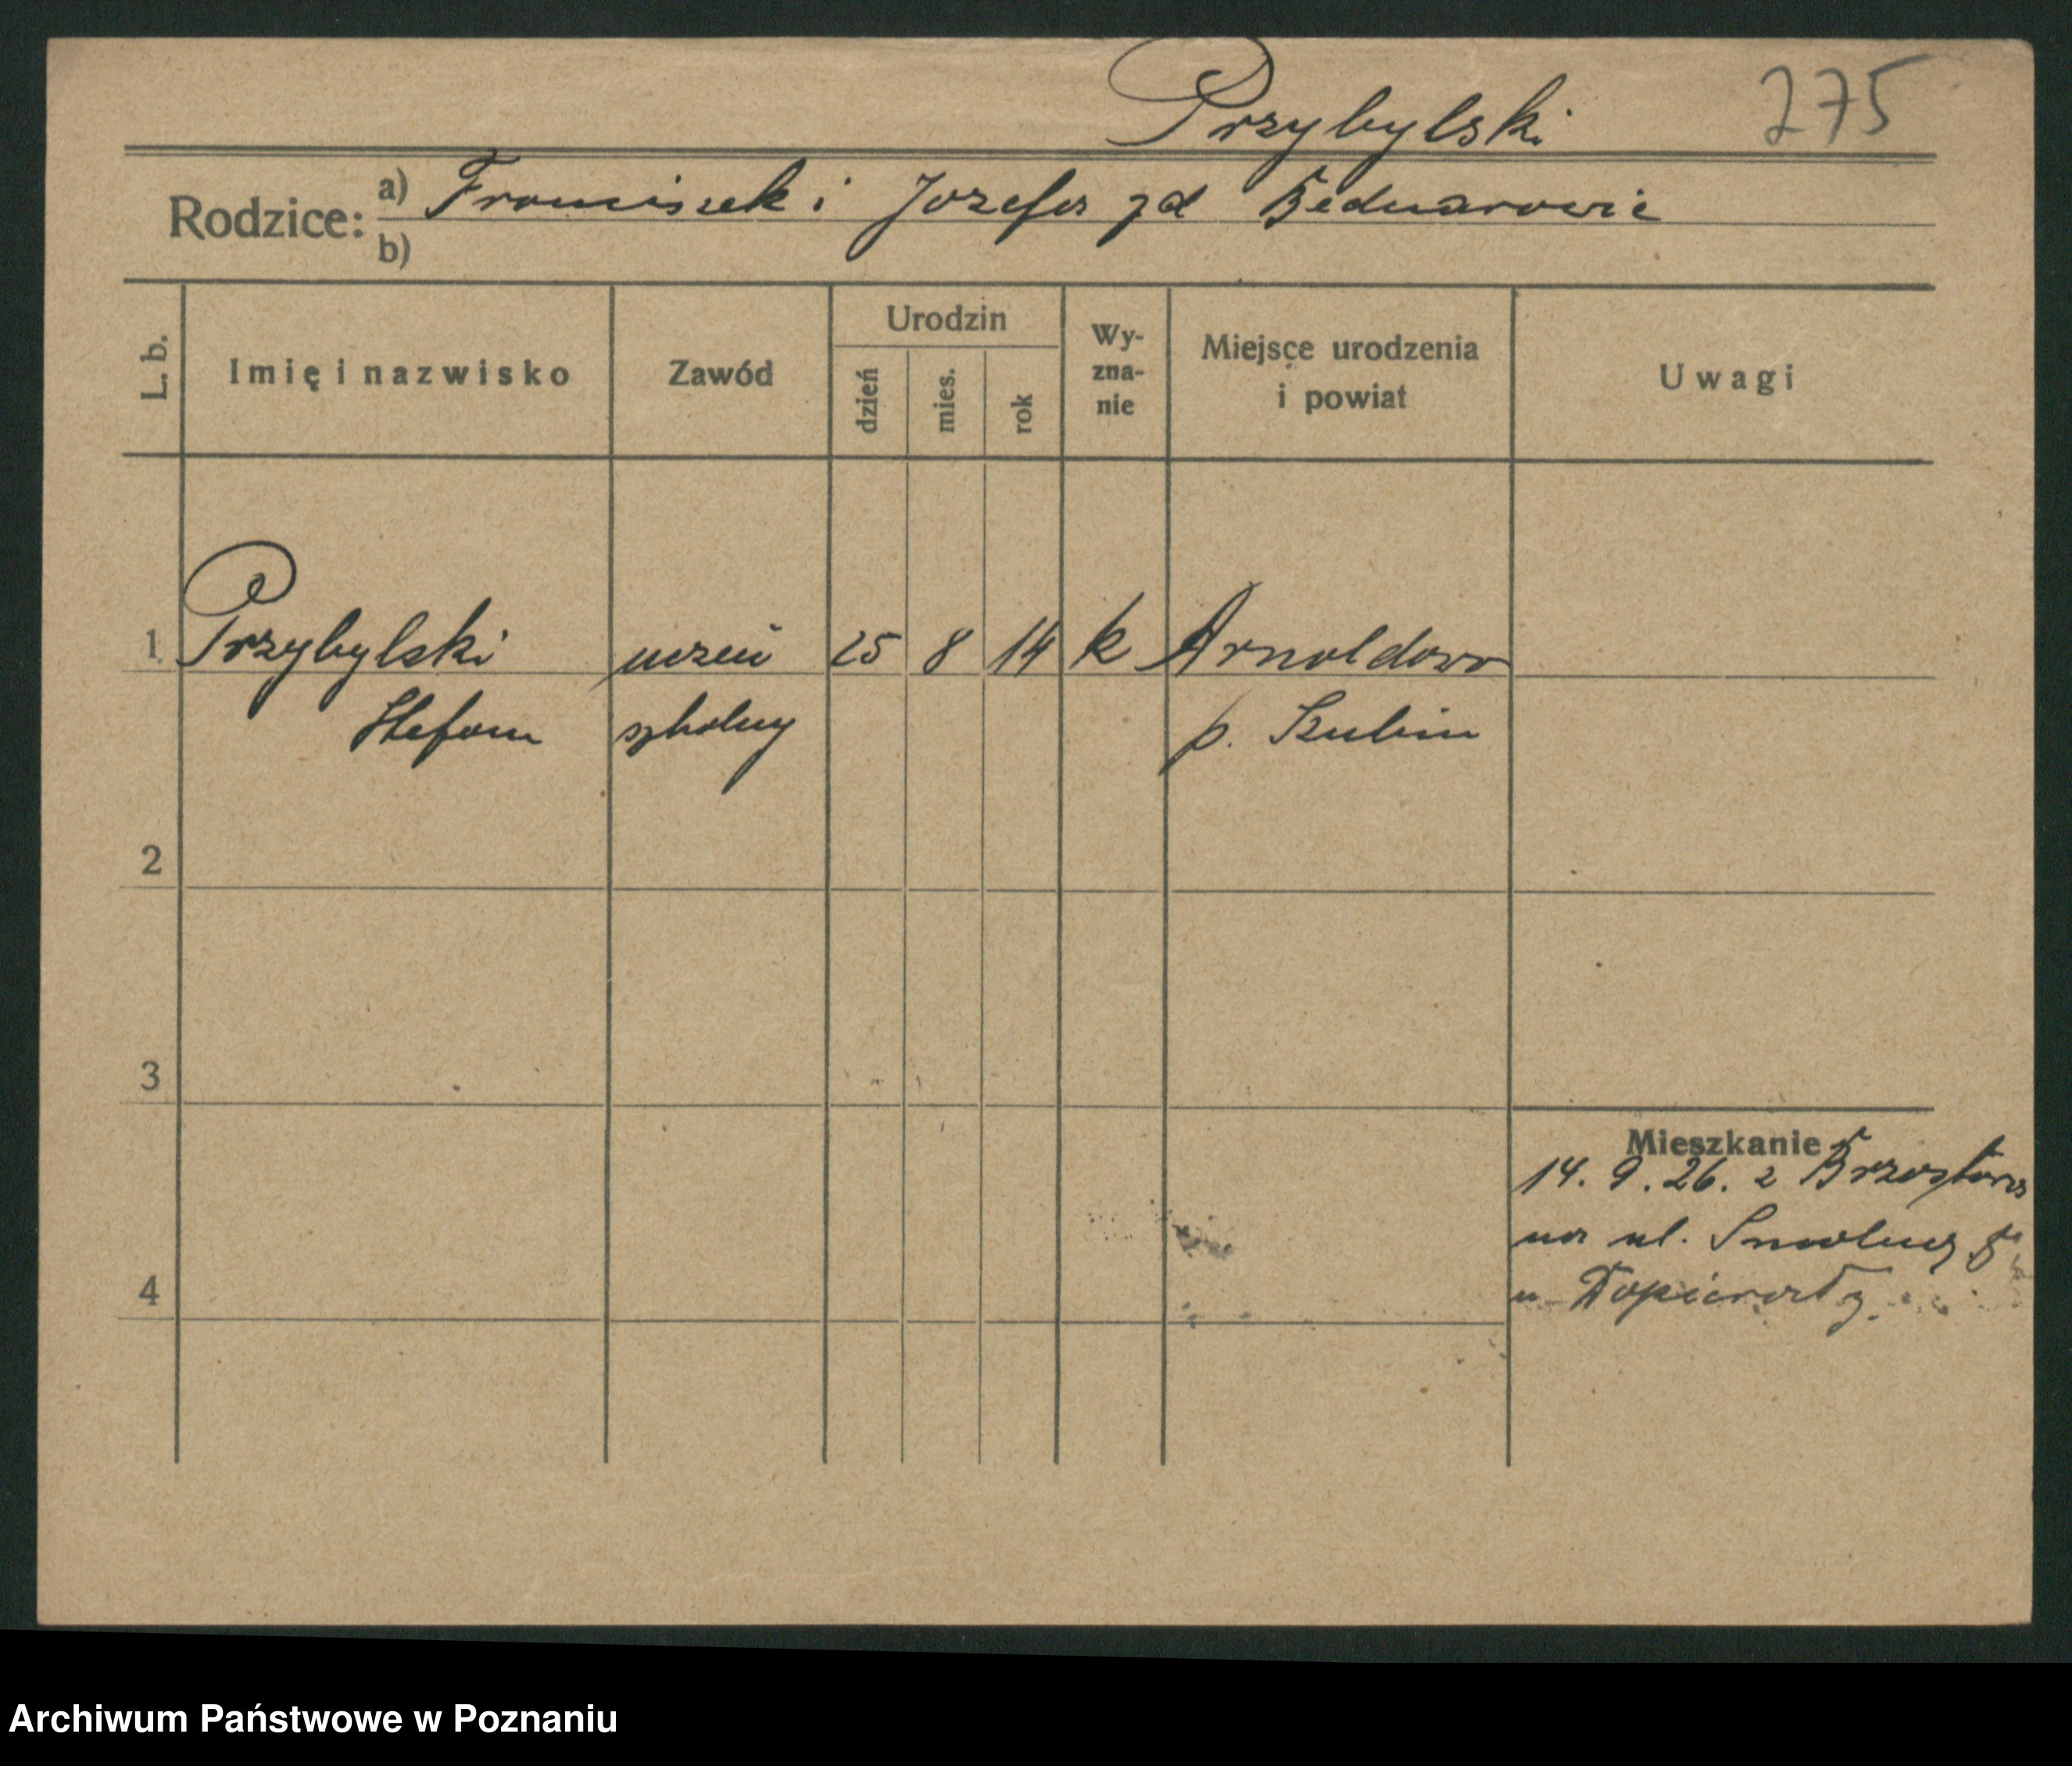 Przybylski 275
Rodzice: a) Franciszek i Jozefa zd Bednarowic
b)
L. b. Imię i nazwisko Zawód Urodzin dzień mies. rok Wy-zna-nie Miejsce urodzenia i powiat Uwagi
1 Przybylski uczeń 25 8 14 k Arnoldowo
Stefan szkolny p. Szubin
2
3
Mieszkanie
14. 9. 26. z
na ul. Smolnej
4
u Dopierały
Archiwum Państwowe w Poznaniu